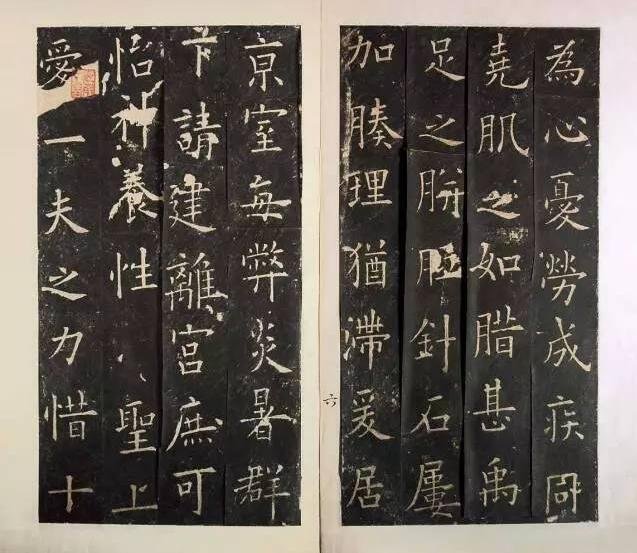 為心憂勞成疾同
堯肌之如腊甚禹
足之胼胝針石屢
加腠理猶滯爰居
六
亰室每弊炎暑群
下請建離宮庶可
怡神養性聖上
愛一夫之力惜十